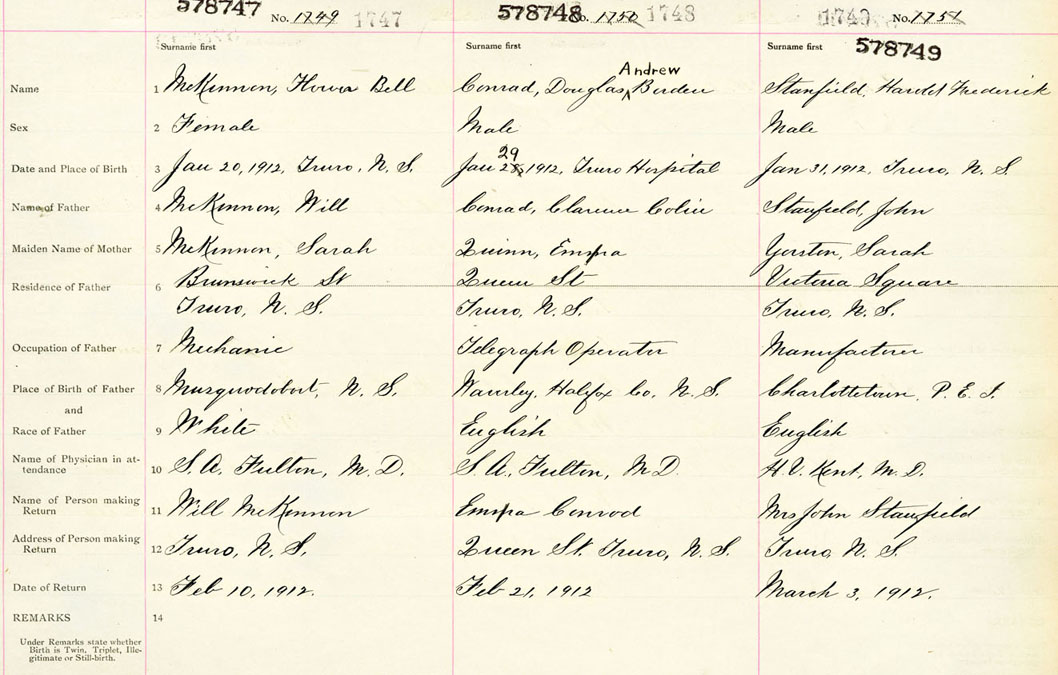 578747 No. 1749 1747 578748 No. 1750 1748 1749 No. 1751
Surname first Surname first Surname first 578749
Andrew
Name 1 McKinnon, Bell Conrad, Douglas, Borden Stanfield, Harold Frederick
Sex 2 Female Male Male
29
Date and Place of Birth 3 Jan 20, 1912, Truro, N. S. Jan 28, 1912, Truro Hospital Jan 31, 1912, Truro, N. S
Name of Father 4 McKinnon, Will Conrad, Clarence Colin Stanfield, John
Maiden Name of Mother 5 McKinnon, Sarah Quinn, Emma Yorston, Sarah
Residence of Father 6 Brunswick St Queen St Victoria Square
Truro, N. S. Truro, N. S. Truro, N. S.
Occupation of Father 7 Mechanic Telegraph Operator Manufacturer
Place of Birth of Father 8 Musquodobort, N. S. Waverley, Halifax Co. N. S. Charlottetown, P. E. I.
and
Race of Father 9 White English English
Name of Physician in at-
tendance 10 S. A. Fulton, M. D. S. A. Fulton, M D. H. V. Kent, M. D.
Name of Person making
Return 11 Will McKinnon Emma Conrod Mrs John Stanfield
Address of Person making
Return 12 Truro, N. S. Queen St. Truro, N. S. Truro, N. S.
Date of Return 13 Feb 10, 1912. Feb 21, 1912 March 3, 1912.
REMARKS 14
Under Remarks state whether
Birth is Twin, Triplet, Ille-
gitimate or Still-birth.